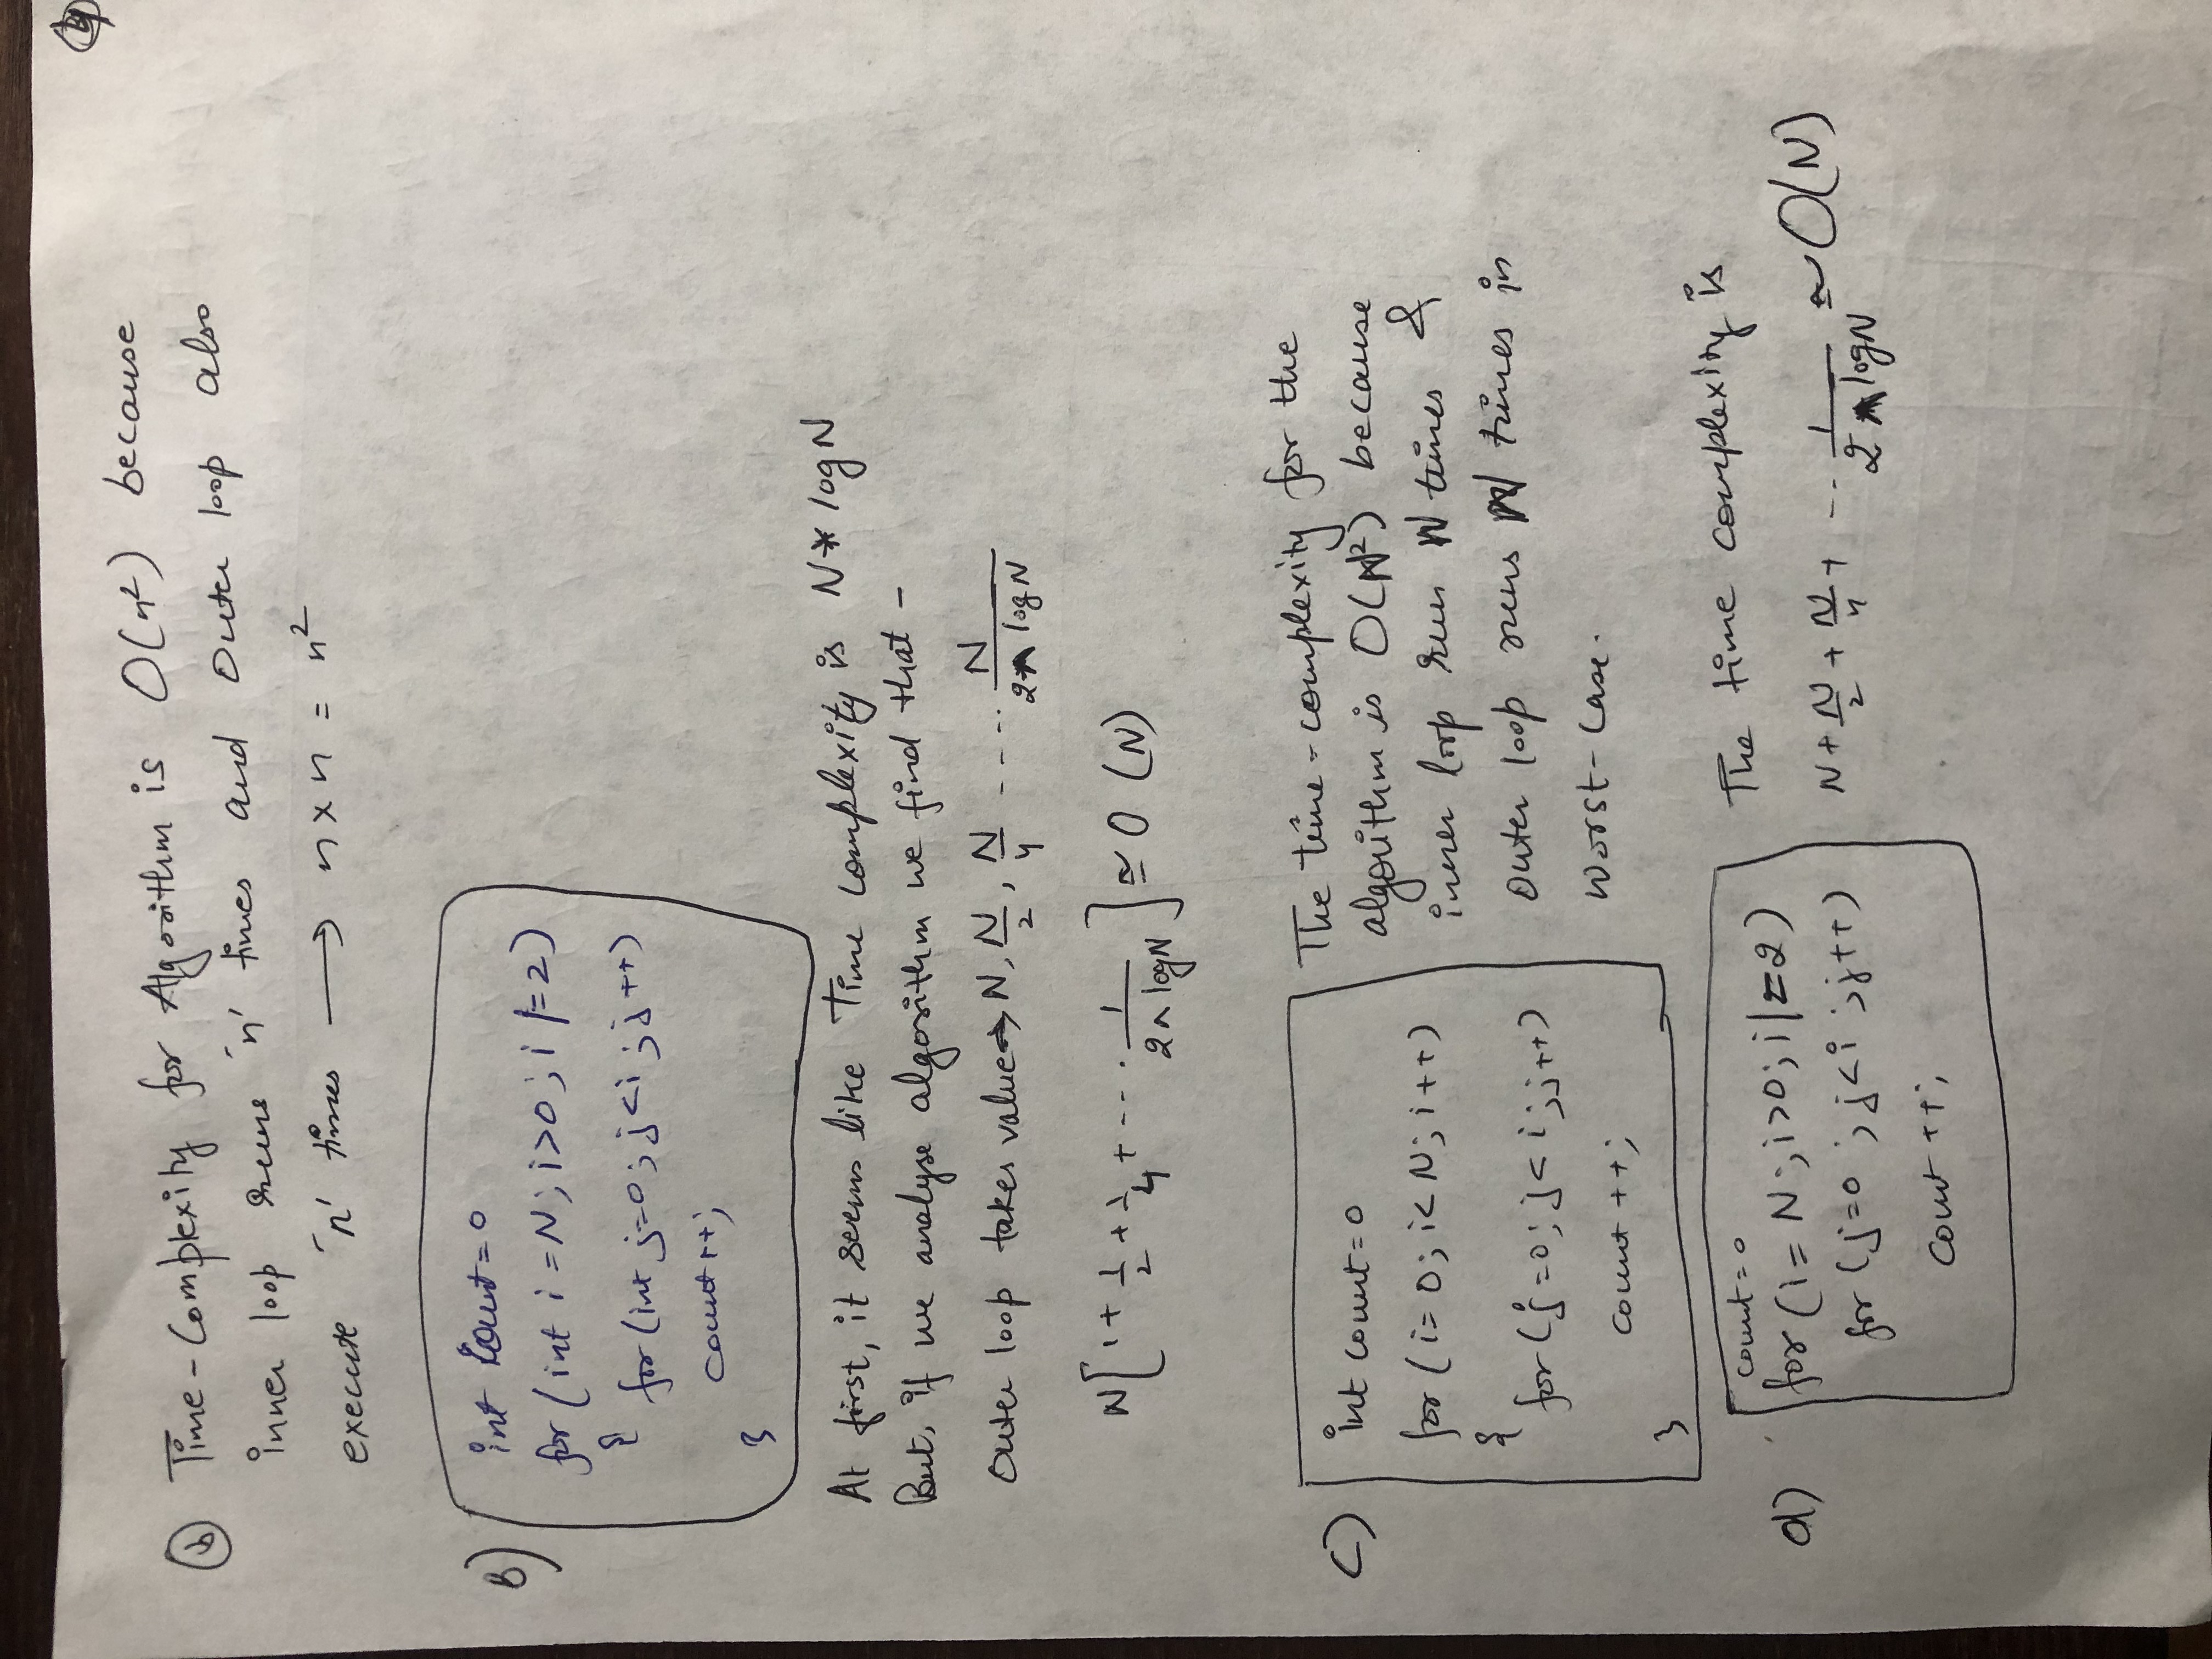 ⓑ Time-Complexity for Algorithm is O(n²) because
inner loop runs 'n' times and Outer loop also
execute 'n' times → n×n = n²
B)
int count=0
for (int i=N; i>0; i/=2)
{ for (int j=0; j<i; j++)
count++;
}
At first, it seems like Time complexity is N* logN
But, if we analyse algorithm we find that -
Outer loop takes value→ N, N/2, N/4 ---- N/(2^logN)
N[1+1/2+1/4+---.1/(2^logN)] ≅ O(N)
C)
int count=0
for (i=0; i<N; i++)
{
for (j=0; j<i; j++)
count++;
}
The time-complexity for the
algorithm is O(N²) because
inner loop run N times &
outer loop runs N times in
worst-case.
d)
count=0
for (i=N; i>0; i/=2)
for (j=0; j<i; j++)
count++;
The time complexity is
N+N/2+N/4+ --.1/(2^logN) ≃ O(N)